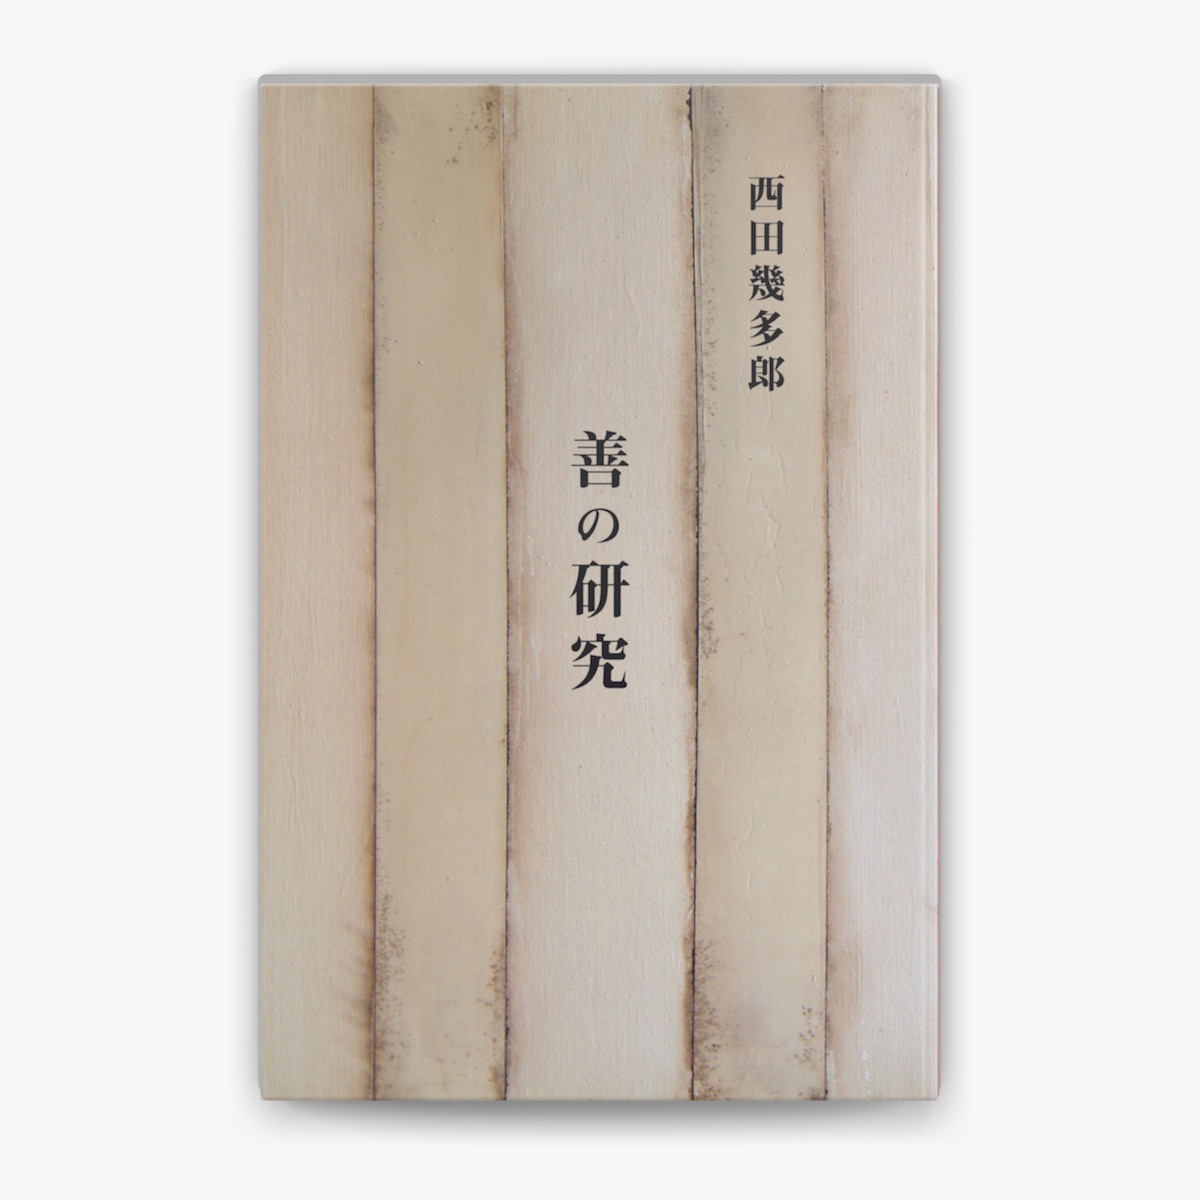 西田幾多郎
善の研究